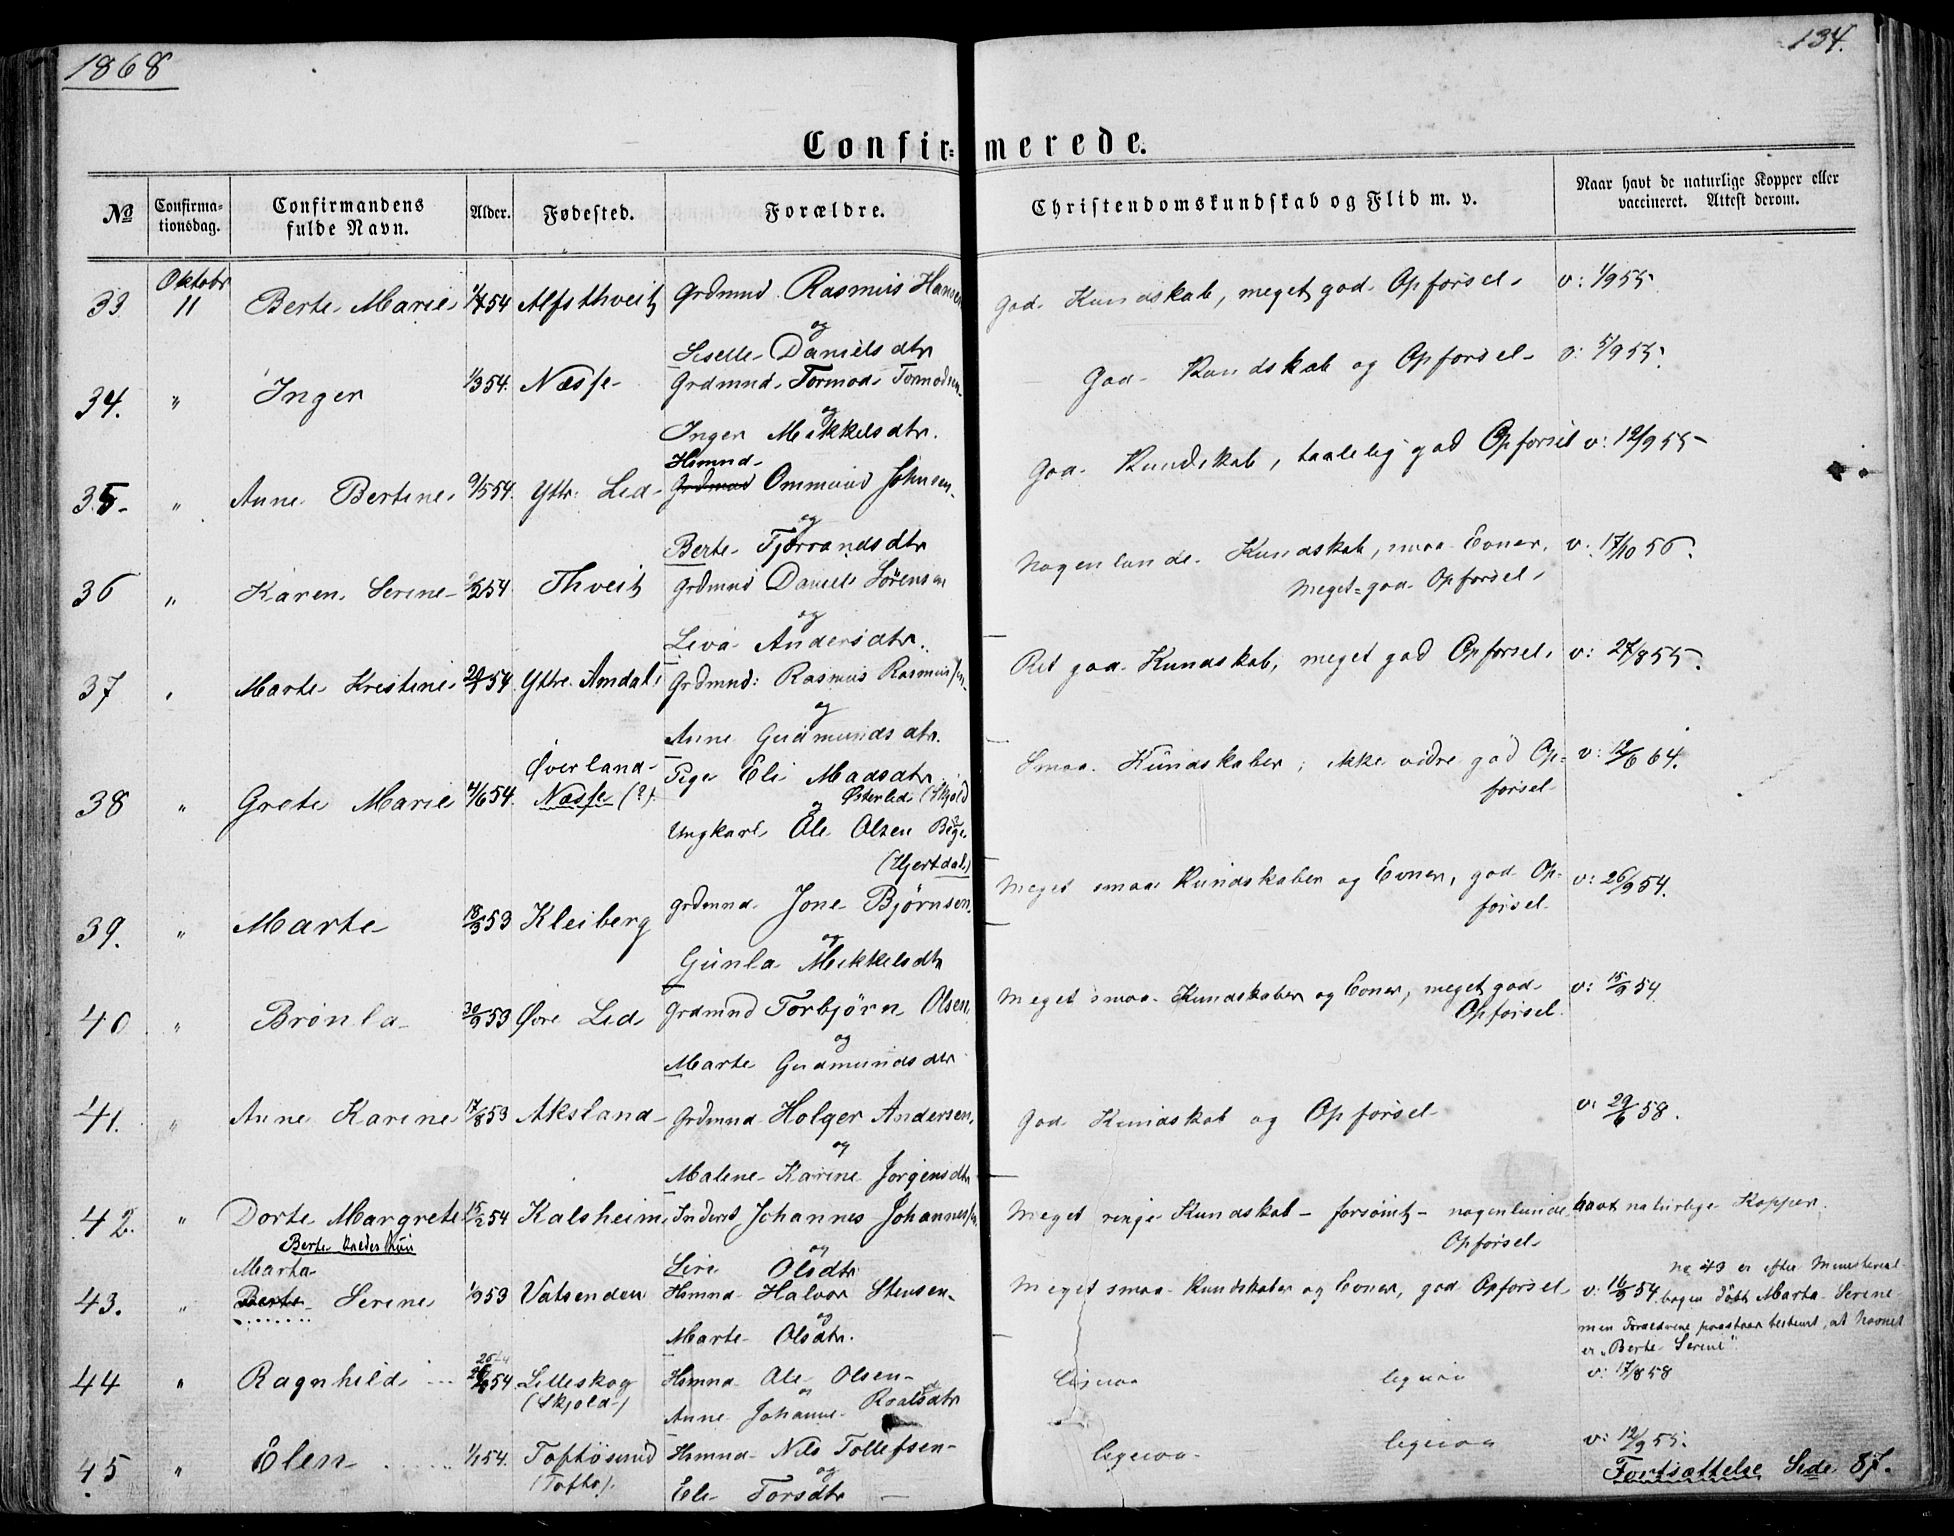 1868
134.
Confir= merede.
No
Confirma-
tionsdag.
Confirmandens
fulde Navn.
Alder.
Fødested.
Forældre.
Christendomskundskab og Flid m. v.
Naar havt de naturlige Kopper eller
vaccineret. Attest derom.
Oktobr
33 11 Berte Marie 54 Alfsthveit Grdmnd Rasmus Hansen God Kundskab, meget god Opførsel v: 1/9 55
og
Siselle Danielsdtr
34. " Inger 1/3 54. Næsse Grdmnd Tormod Tormodsen God Kundskab og Opførsel v: 5/9 55.
og
Inger Mikkelsdtr.
Hsmnd
35 " Anne Bertine 9/5 54. Yttr: Lid Grdmnd Ommund Johnsen God Kundskab, taalelig god Opførsel v: 12/9 55
og
Berte Tjerrandsdtr
36 " Karen Serine 54 Thveit Grdmnd Daniel Sørensen Nogenlunde Kundskab, smaa Evner, v: 17/10 56.
Meget god Opførsel
og
Liva Andersdtr.
37 " Marte Kristine 54 Yttre Amdal Grdmnd: Rasmus Rasmussen Ret god Kundskab, meget god Opførsel v: 27/8 55.
og
Anne Gudmundsdtr.
38 " Grete Marie 4/6 54. Øverland Næsse (?) Pige Eli Madsdtr Smaa Kundskaber, ikke vidre god Op- v: 12/6 64.
førsel
Østerlid (Skjold
og
Ungkarl Ole Olsen
(Hjertdal)
39. " Marte 53 Kleiberg Grdmnd Jone Bjørnsen Meget smaa Kundskaber og Evner, god Op- v: 26/9 54.
førsel
og
Gunla Mikkelsdtr
40 " Brønla 30/9 53 Øvre Lid Grdmnd Torbjørn Olsen Meget smaa Kundskaber og Evner, meget god v: 15/9 54
Opførsel
og
Marte Gudmundsdtr
41. " Anne Karine 17/8 53 Aksland Grdmnd Holger Andersen, God Kundskab og Opførsel v: 29/6 58.
og
Malene Karine Jørgensdtr
42. " Dorte Margrete 15/2 54 Kalsheim Inderst Johannes Johannessen Meget ringe Kundskab - forsømt - nogenlunde havt naturlige Kopper.
Opførsel
Berte kaldes hun
og
Siri Olsdtr
Marta
43. " Berte Serine 1/3 53 Vatsenden Hsmnd Halvor Stensen Meget smaa Kundskaber og Evner, god Opførsel v: 54
No 43 er efter Ministerial-
bogen døbt Marta Serine
men Forældrene paastaar bestemt, at Navnet
er „Berte Serine".
og
Marte Olsdtr.
44 " Ragnhild 54 Lilleskog Hsmnd Ole Olsen ligesaa ligesaa v: 17/8 58
(Skjold) og
Anne Johanne Roalsdtr
45 " Elen 1/1 54. Toftøsund Hsmnd Nils Tollefsen ligesaa ligesaa v: 12/9 55.
(Toftø) og
Eli Torsdtr
Fortsættelse Side 87.